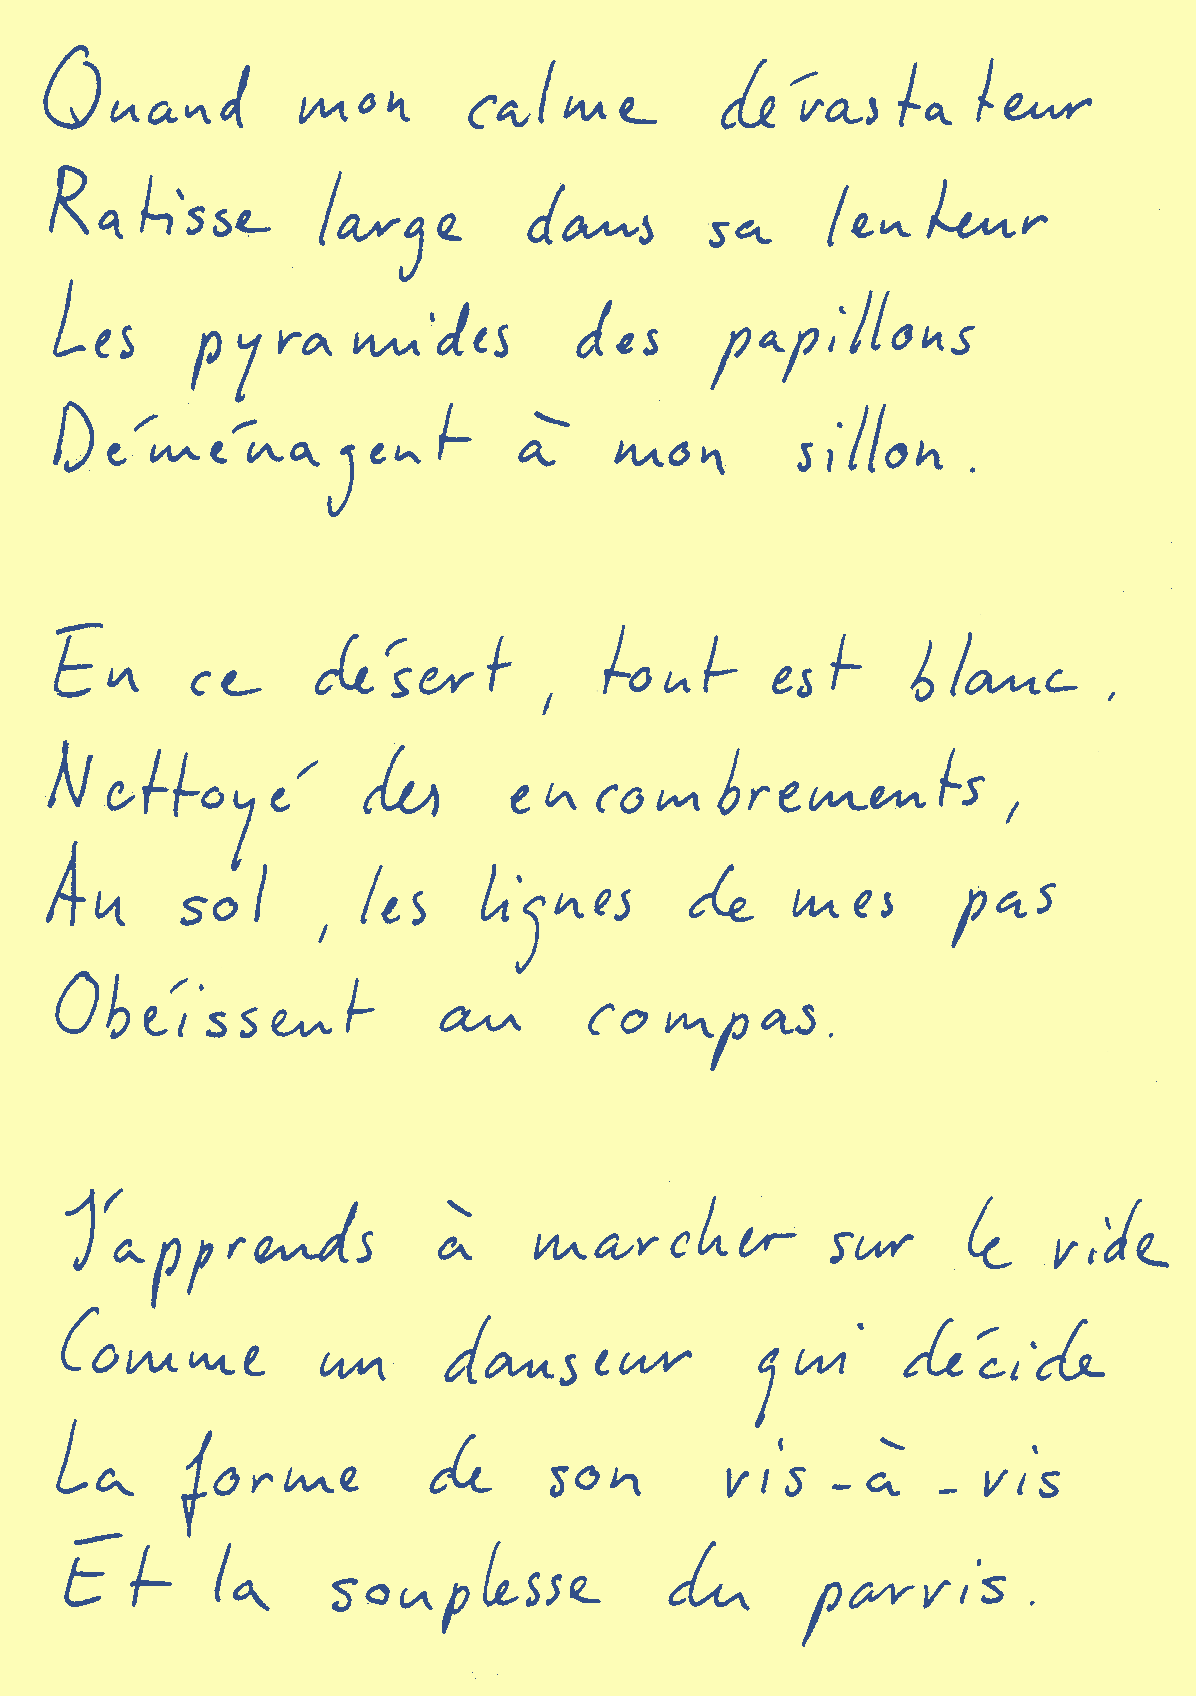 Quand mon calme dévastateur
Ratisse large dans sa lenteur
Les pyramides des papillons
Déménagent à mon sillon.
En ce désert, tout est blanc.
Nettoyé des encombrements,
Au sol, les lignes de mes pas
Obéissent au compas.
J'apprends à marcher sur le vide
Comme un danseur qui décide
La forme de son vis-à-vis
Et la souplesse du parvis.